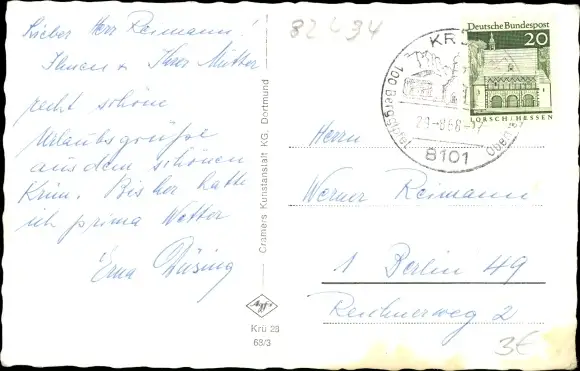 Lieber Herr Reimann!
Ihnen + Ihrer Mutter
recht schöne
Urlaubsgrüße
aus dem schönen
Krün. Bisher hatte
ich prima Wetter
Erna Düsing
Cramers Kunstanstalt KG, Dortmund
Agfa
Krü 28
68/3
82434
Deutsche Bundespost
20
LORSCH / HESSEN
KR
8101
Herrn
Werner Reimann
1 Berlin 49
Reichnerweg 2
3€